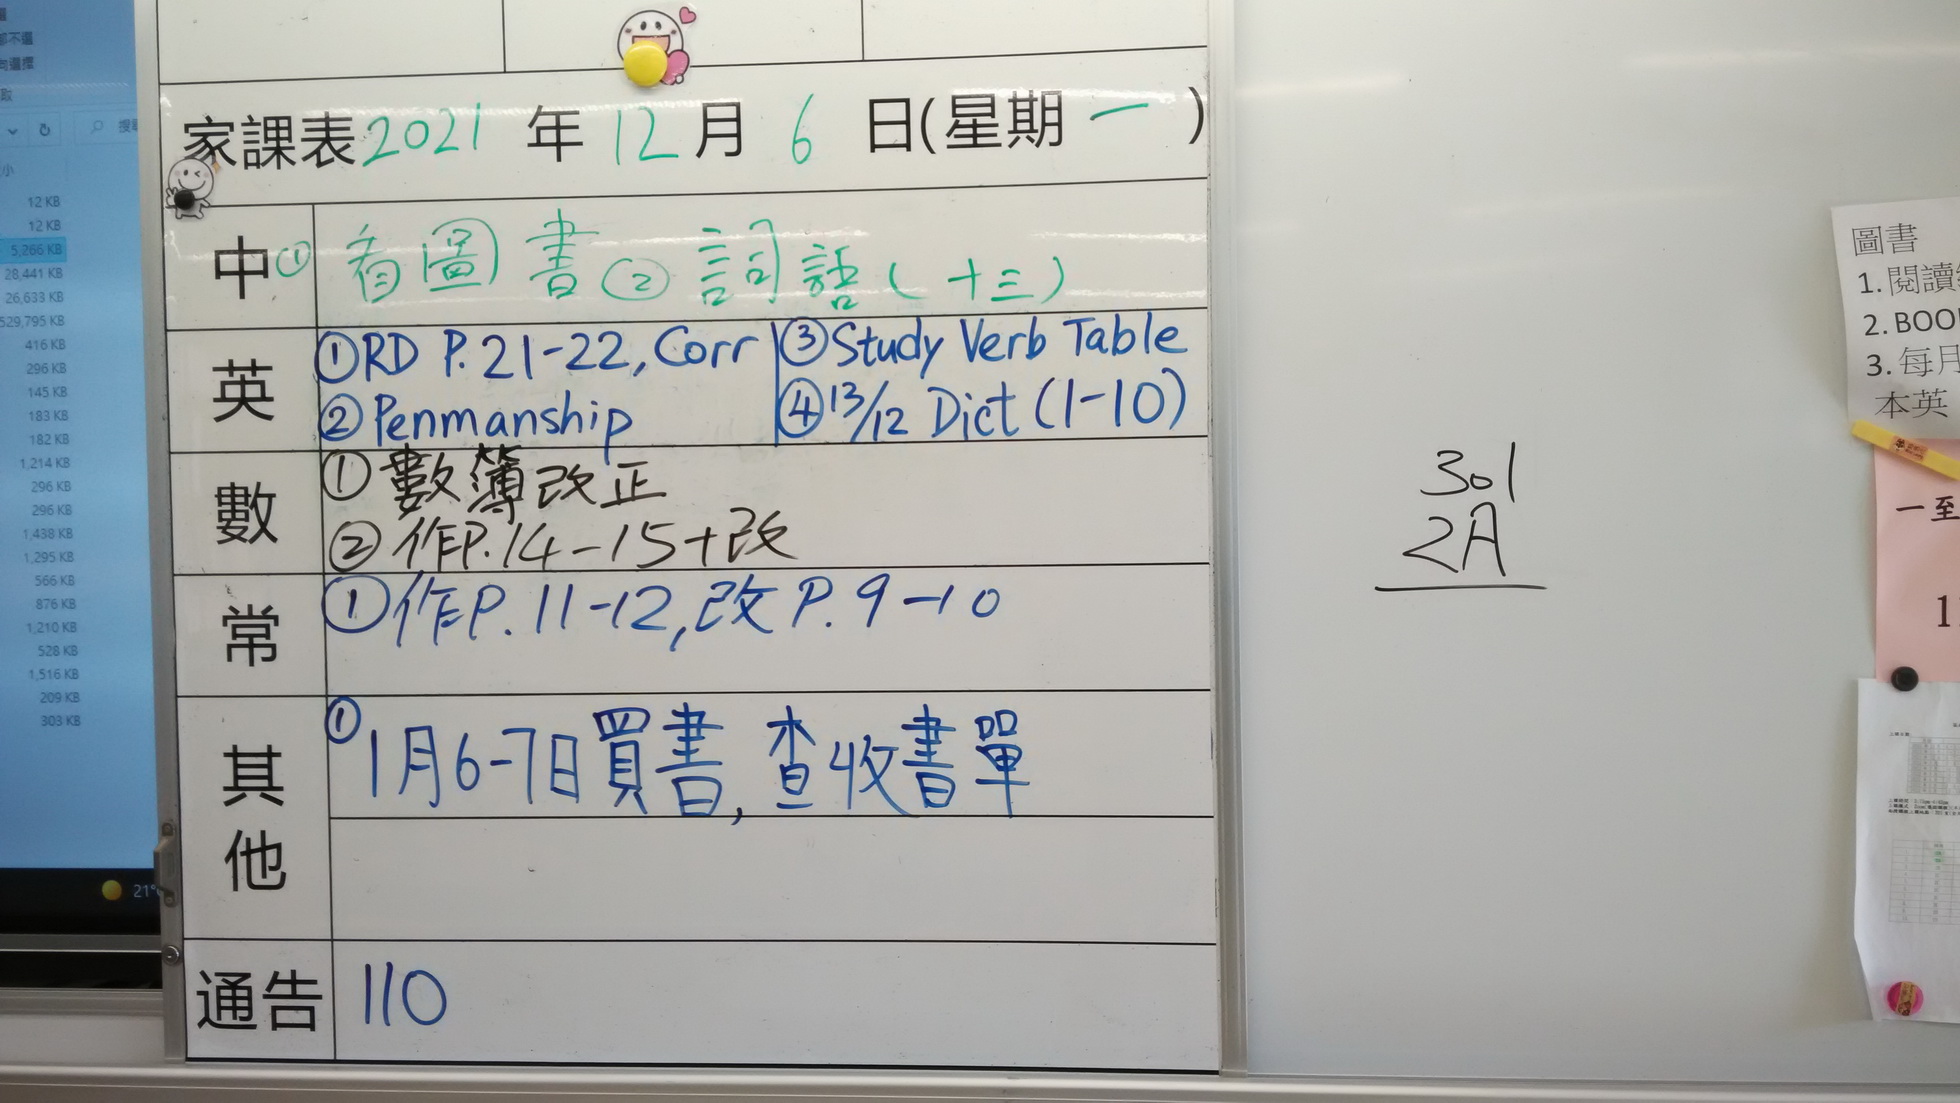 部不選
向選擇
取
搜尋
小
12 KB
12 KB
5,266 KB
28,441 KB
26,633 KB
529,795 KB
416 KB
296 KB
145 KB
183 KB
182 KB
1,214 KB
296 KB
296 KB
1,438 KB
1,295 KB
566 KB
876 KB
1,210 KB
528 KB
1,516 KB
209 KB
303 KB
21°
家課表2021 年 12 月 6 日(星期一)
中 ①看圖書 ②詞語(十三)
英 ①RD P.21-22, Corr ③Study Verb Table
②Penmanship ④13/12 Dict (1-10)
數 ①數簿改正
②作P.14-15+改
常 ①作P.11-12,改P.9-10
其他 ①1月6-7日買書,查收書單
通告 110
301
2A
圖書
1. 閱讀
2. BOO
3. 每月
本英
一至
1